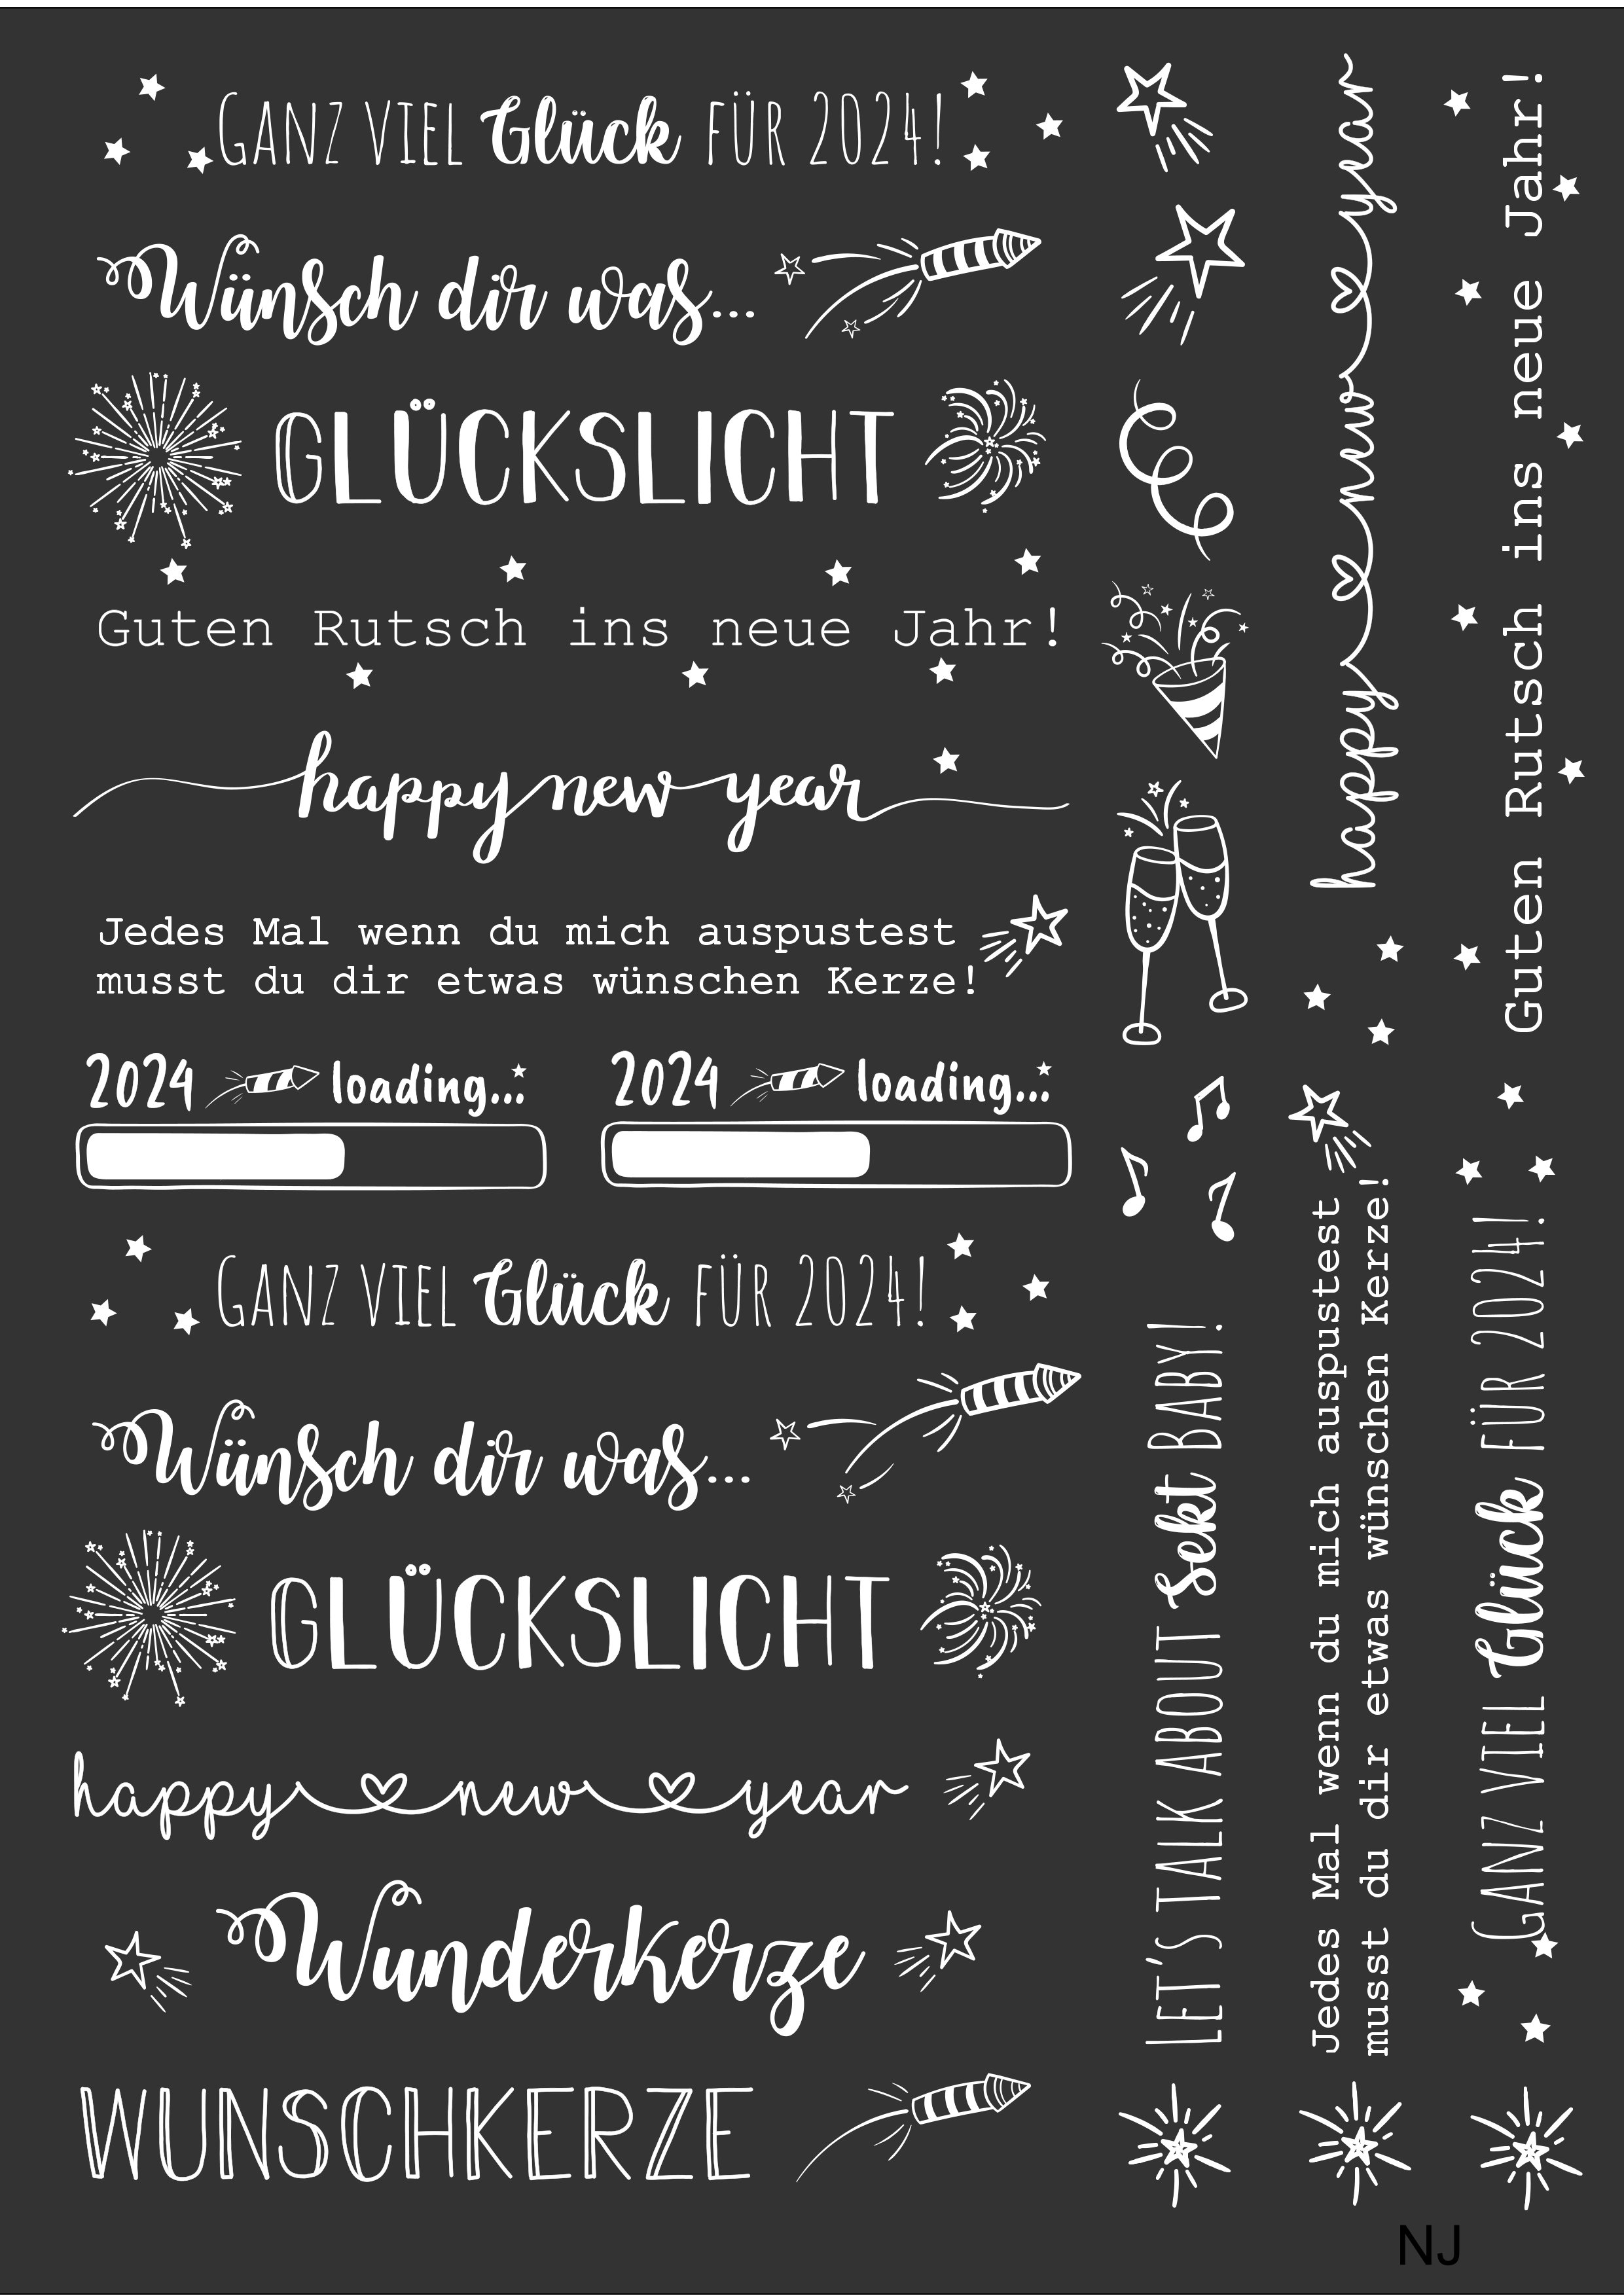 GANZ VIEL Glück FÜR 2024!
Wünsch dir was...
GLÜCKSLICHT
Guten Rutsch ins neue Jahr!
happy new year
Jedes Mal wenn du mich auspustest
musst du dir etwas wünschen Kerze!
2024 loading...
2024 loading...
GANZ VIEL Glück FÜR 2024!
Wünsch dir was...
GLÜCKSLICHT
happy new year
Wunderkerze
WUNSCHKERZE
LET'S TALK ABOUT Sekt BABY!
happy new year
Jedes Mal wenn du mich auspustest
musst du dir etwas wünschen Kerze!
Guten Rutsch ins neue Jahr!
GANZ VIEL Glück FÜR 2024!
NJ